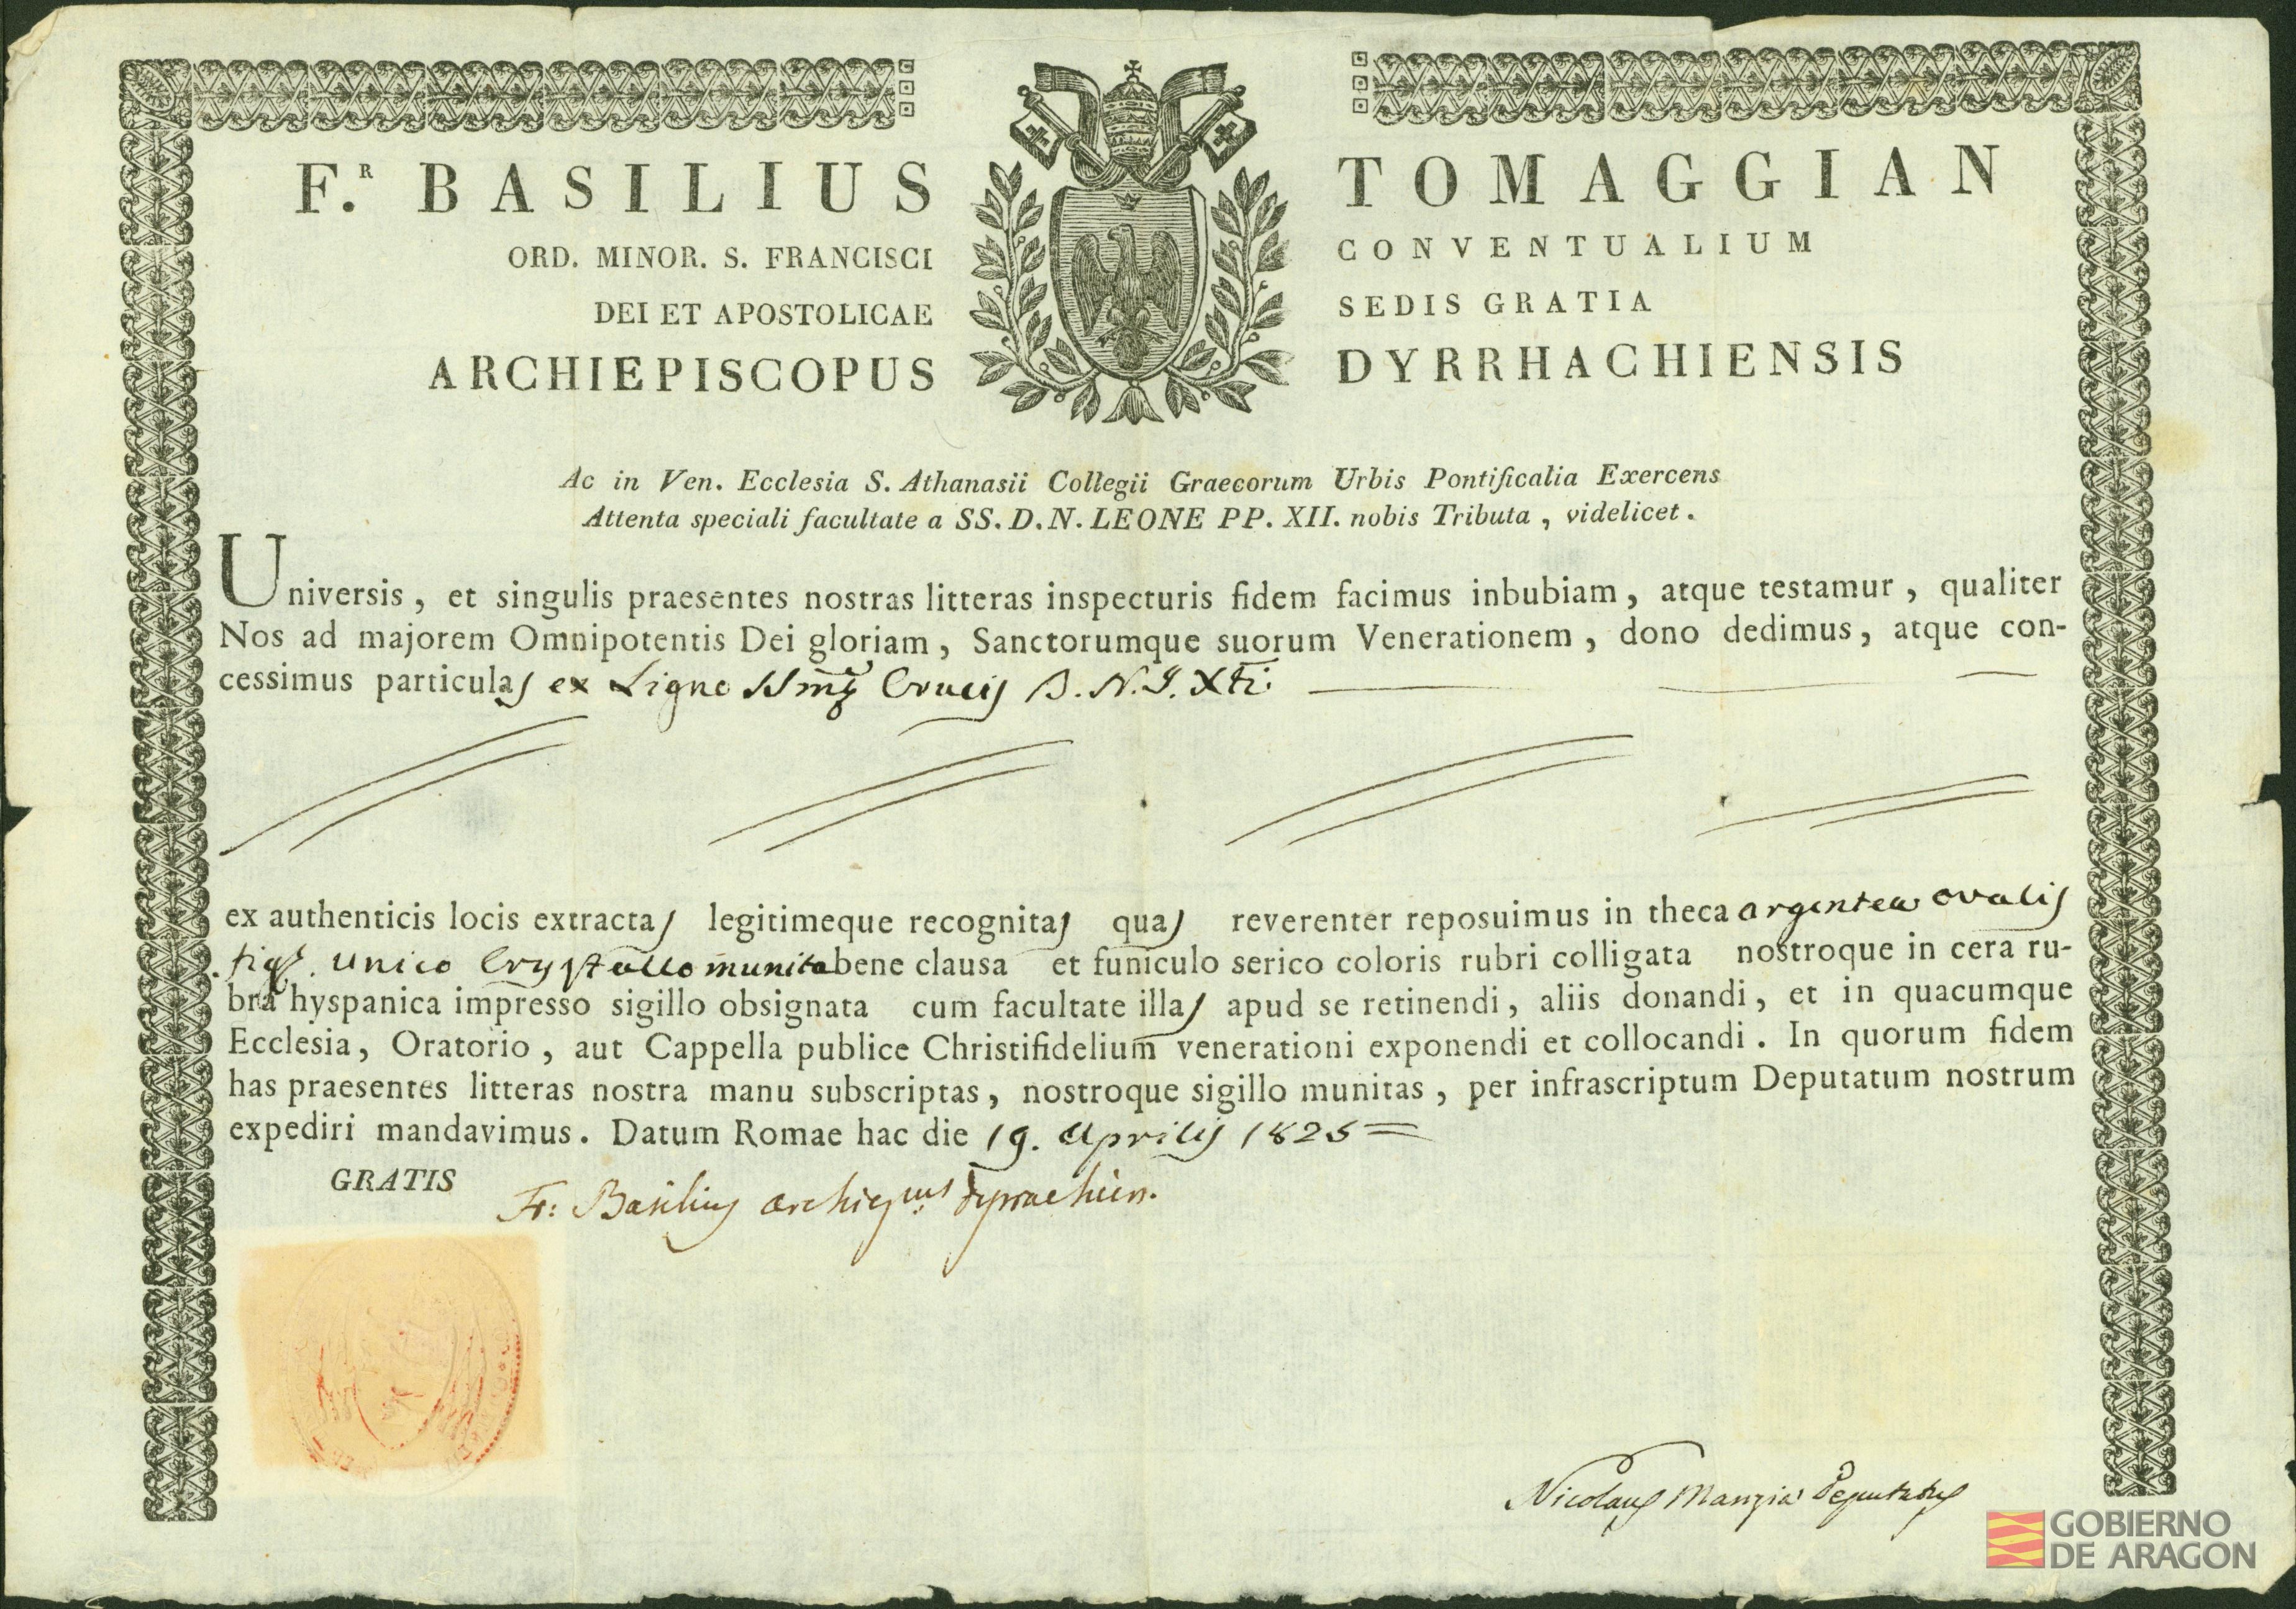 F.R BASILIUS TOMAGGIAN
ORD. MINOR. S. FRANCISCI CONVENTUALIUM
DEI ET APOSTOLICAE SEDIS GRATIA
ARCHIEPISCOPUS DYRRHACHIENSIS
Ac in Ven. Ecclesia S. Athanasii Collegii Graecorum Urbis Pontificalia Exercens
Attenta speciali facultate a SS. D. N. LEONE PP. XII. nobis Tributa , videlicet .
Universis , et singulis praesentes nostras litteras inspecturis fidem facimus inbubiam , atque testamur , qualiter
Nos ad majorem Omnipotentis Dei gloriam , Sanctorumque suorum Venerationem , dono dedimus , atque con-
cessimus particulas ex Ligno SSmæ Crucis D. N. J. Xti.
ex authenticis locis extractas legitimeque recognitas quas reverenter reposuimus in theca argentea ovalis
fig. unico Crystallo munita bene clausa et funiculo serico coloris rubri colligata nostroque in cera ru-
bra hyspanica impresso sigillo obsignata cum facultate illas apud se retinendi , aliis donandi , et in quacumque
Ecclesia , Oratorio , aut Cappella publice Christifidelium venerationi exponendi et collocandi . In quorum fidem
has praesentes litteras nostra manu subscriptas , nostroque sigillo munitas , per infrascriptum Deputatum nostrum
expediri mandavimus . Datum Romae hac die 19. Aprilis 1825 =
GRATIS
Fr: Basilius Archiepus Dyrrachien.
Nicolaus Manzia Deputatus
GOBIERNO
DE ARAGON